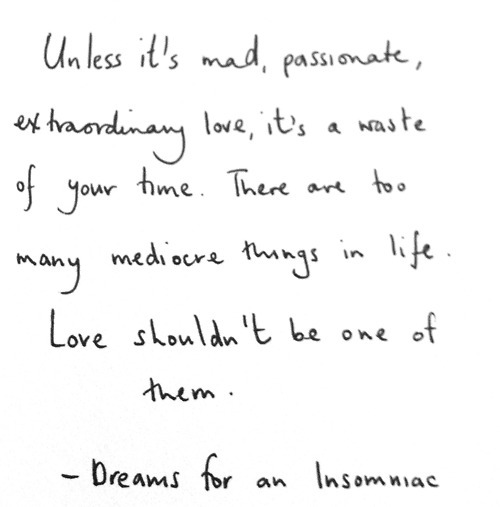 Unless it's mad, passionate,
extraordinary love, it's a waste
of your time. There are too
many mediocre things in life.
Love shouldn't be one of
them.
- Dreams for an Insomniac